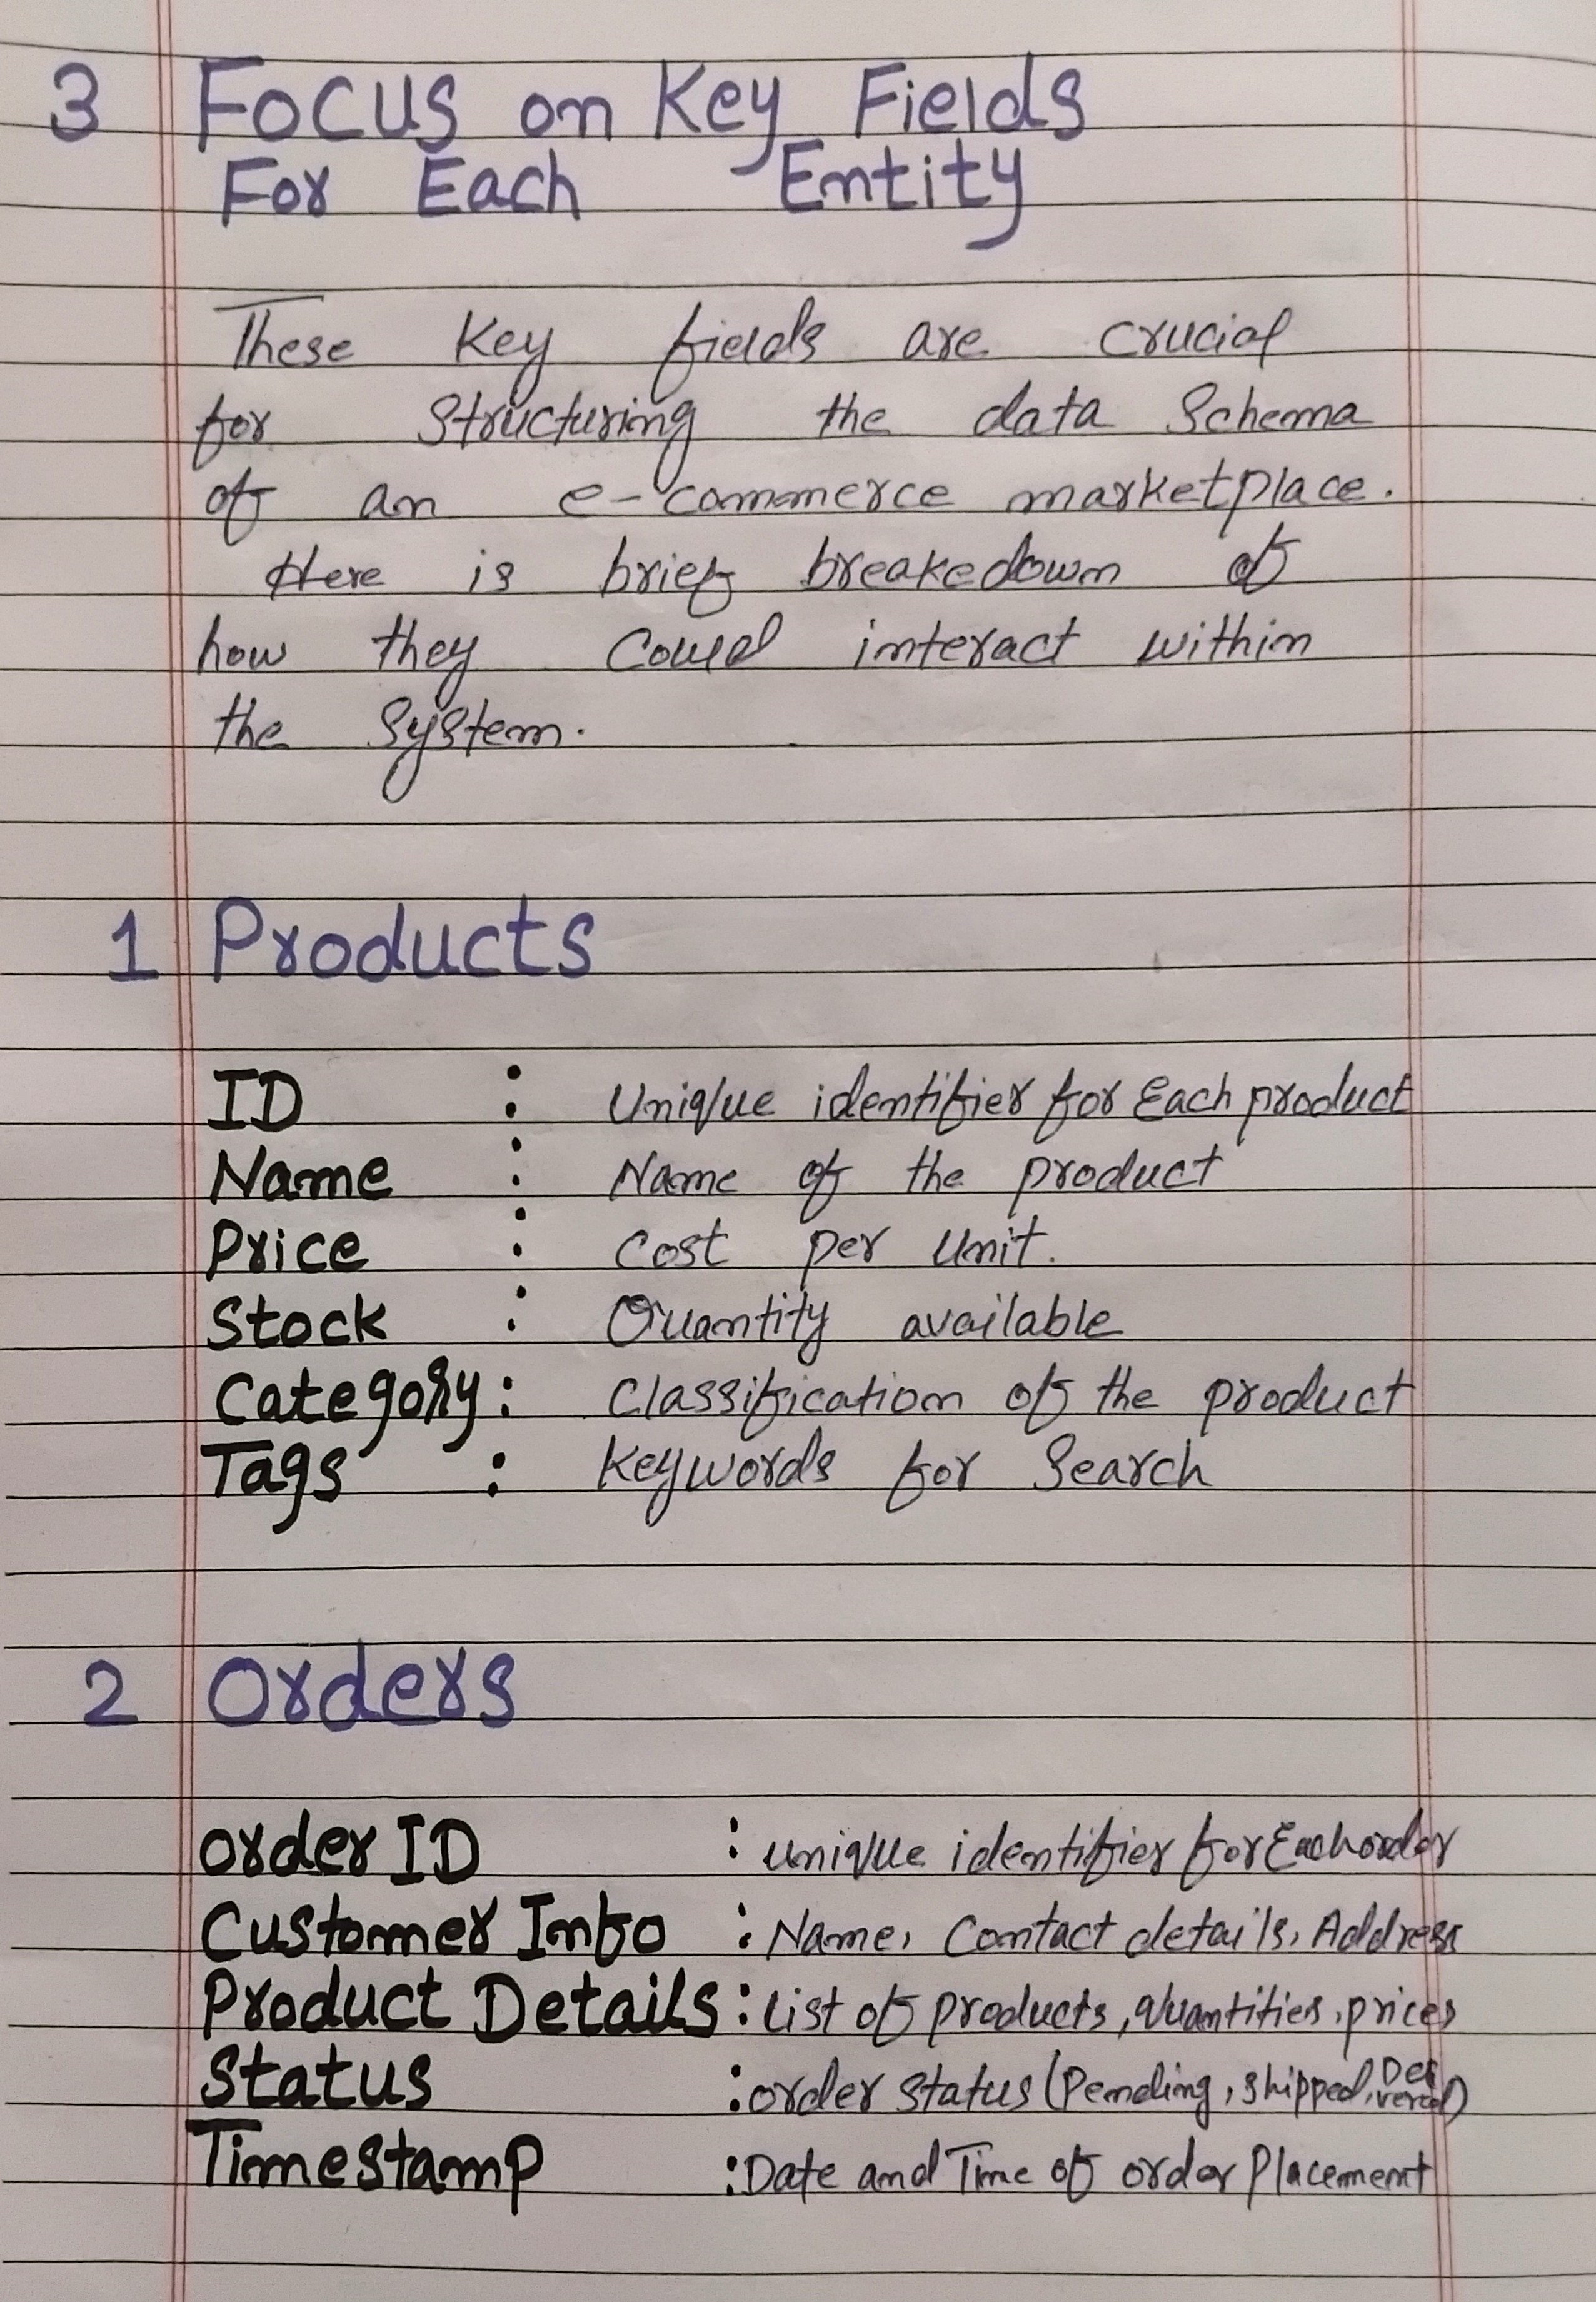 3 Focus on Key Fields
For Each Entity
These Key fields are crucial
for Structuring the data Schema
of an e-commerce marketplace.
Here is brief breakedown of
how they Could interact within
the System.
1 Products
ID : Unique identifier for Each product
Name : Name of the product
Price : Cost per Unit.
Stock : Quantity available
Category : Classification of the product
Tags : Keywords for Search
2 Orders
Order ID : unique identifier for Each order
Customer Info : Name, Contact details, Address
Product Details : List of products, quantities, prices
Status : order status (Pending, shipped, Delivered)
Timestamp : Date and Time of order Placement